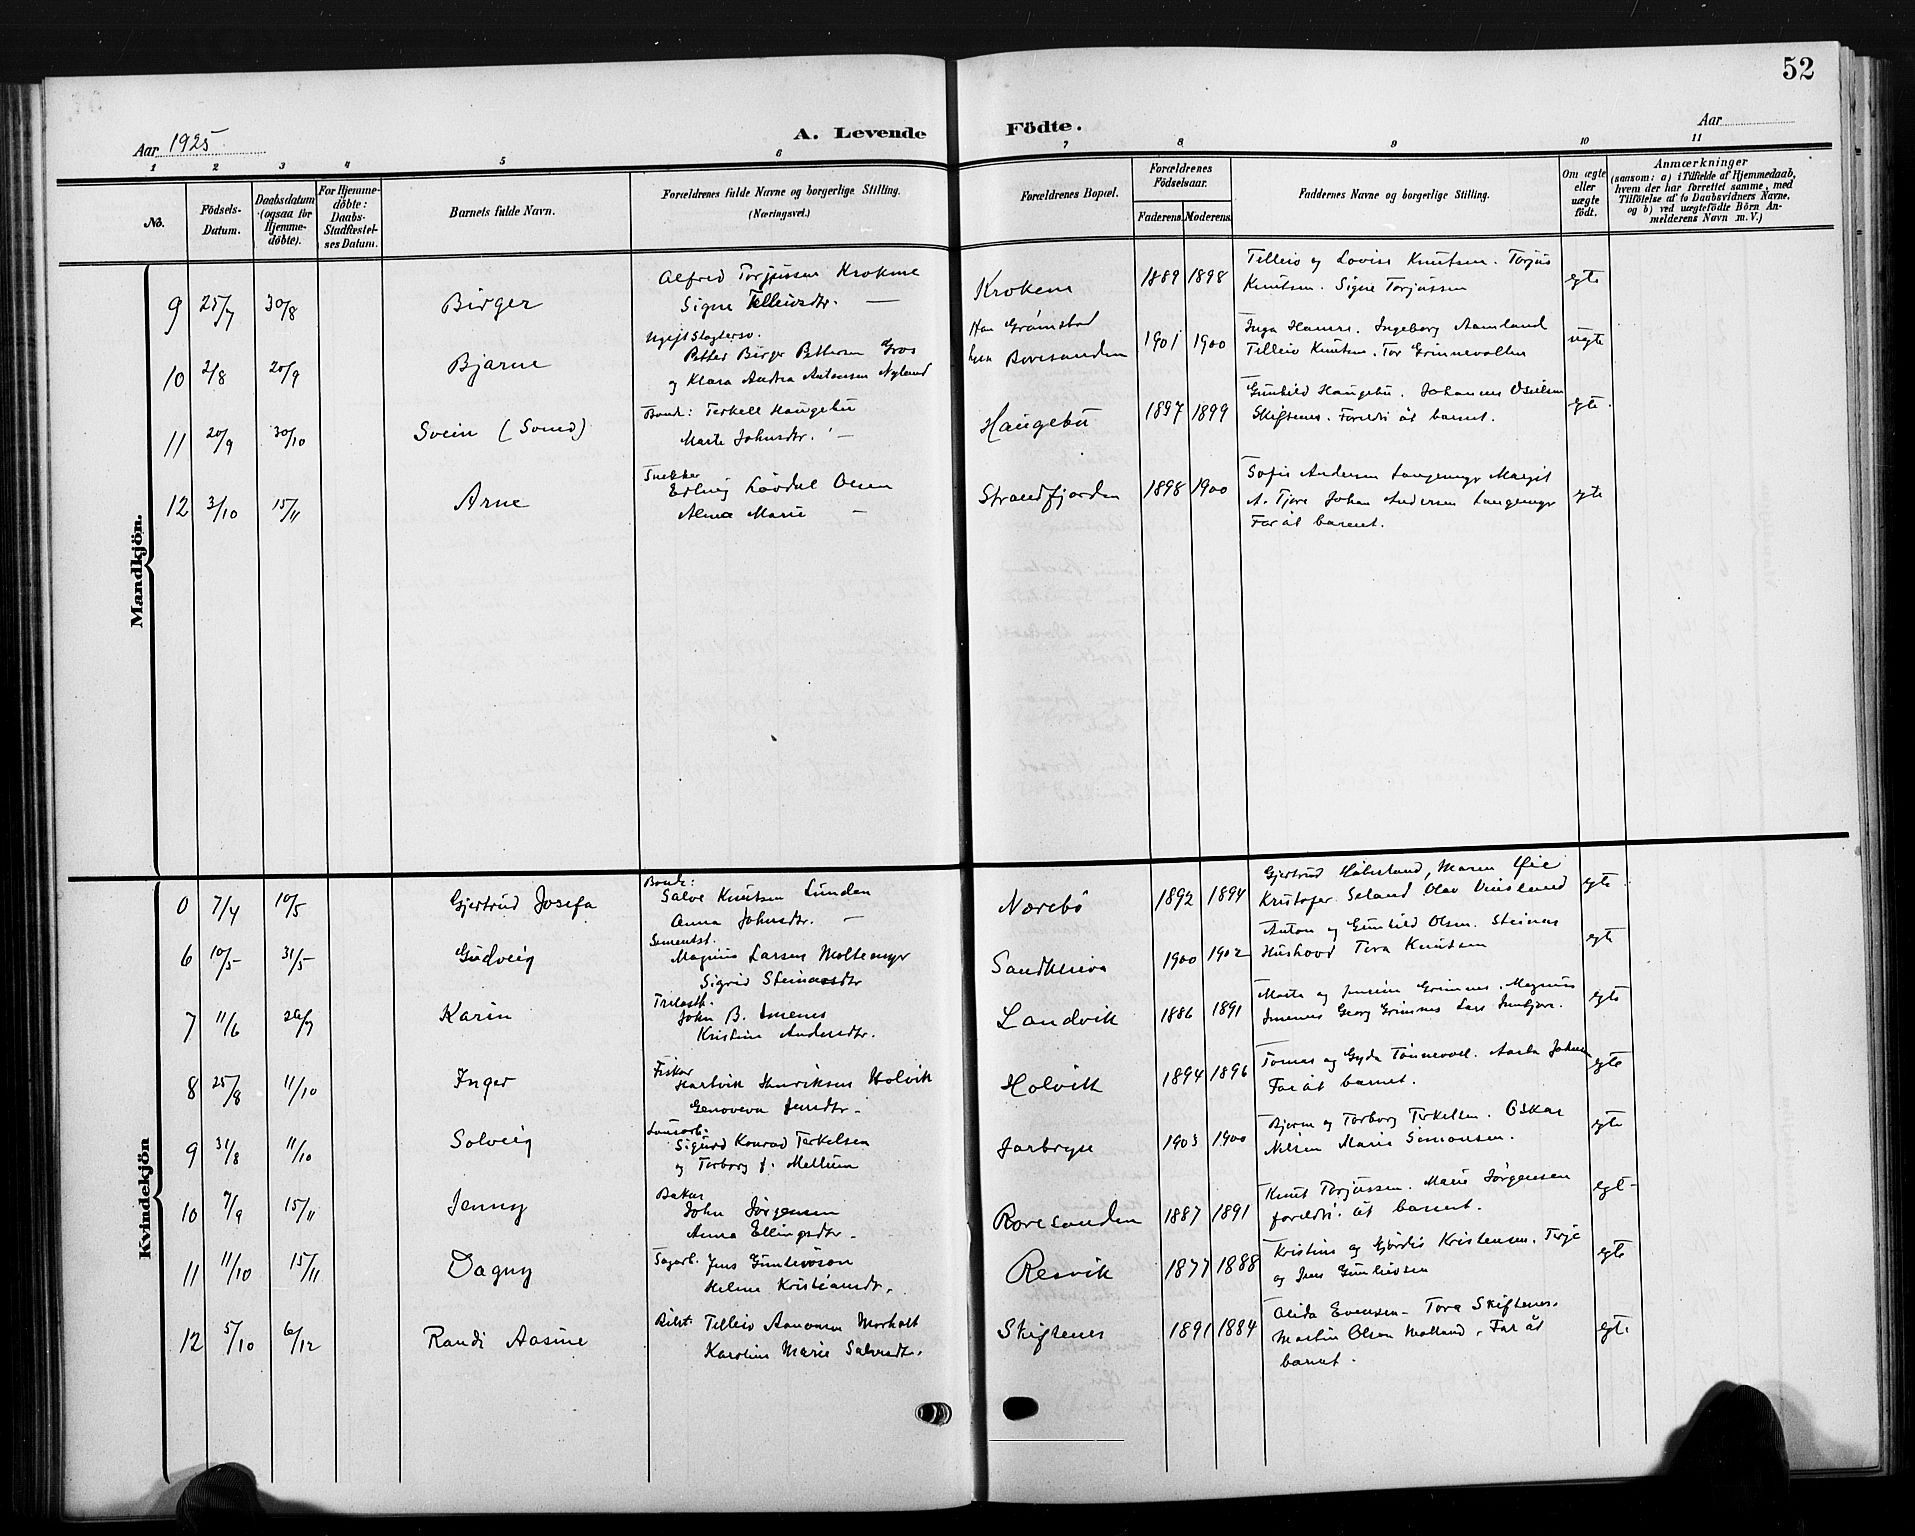 52
Aar 1925
A. Levende Födte.
Aar
1 2 3 4 5 6 7 8 9 10 11
No.
Födsels-Datum.
Daabsdatum (ogsaa for Hjemmedöbte).
For Hjemmedöbte: Daabs-Stadfæstelses Datum.
Barnets fulde Navn.
Forældrenes fulde Navne og borgerlige Stilling. (Næringsvei.)
Forældrenes Bopæl.
Forældrenes Födselsaar.
Faderens. Moderens.
Faddernes Navne og borgerlige Stilling.
Om ægte eller uægte födt.
Anmærkninger
(saasom: a) i Tilfælde af Hjemmedaab, hvem der har forrettet samme, med Tilföielse af to Daabsvidners Navne, og b) ved uægtefödte Börn Anmelderens Navn m. V.)
Mandkjön.
9 25/7 30/8 Birger
Alfred Torjussen Krokene
Signe Telleivsdtr. —
Krokene 1889 1898
Telleiv og Lovise Knutsen. Torjus
Knutsen. Signe Torjussen
egte
10 2/8 20/9 Bjarne
Petter Birger Pettersen Gros
og Klara Andrea Antonsen Nyland
Han Grimstad
hun Roresanden 1901 1900
Inga Hamre. Ingeborg Aamland
Telleiv Knutsen. Tor Grinnevollen
uegte
11 20/9 30/10 Svein (Svend)
Bonde: Terkell Haugebu
Marte Johnsdtr. —
Haugebu 1897 1899
Gunhild Haugebu. Johannes Osuldsen
Skiftenes. Foreldr. åt barnet.
egte.
12 3/10 15/11 Arne
Snekker
Erling Løvdal Olsen
Alma Marie —
Strandfjorden 1898 1900
Sofie Andersen Langemyr Margit
A. Tjore Johan Andersen Langemyr
Far åt barnet.
egte
Kvindekjön
0 7/4 10/5 Gjertrud Josefa
Bonde:
Salve Knutsen Lunden
Anna Johnsdtr. —
Nærebö 1892 1894
Gjertrud Håbestand, Maren Øie
Kristofer Seland Olav Vinsland
egte
6 10/5 31/5 Gudveig
Sementst.
Magnus Larsen Moltemyr
Sigrid Steinarsdtr
1900 1902
Anton og Gunhild Olsen. Steinar
Hushovd Tora Knutsen
egte
7 11/6 26/7 Karin
John B. Imenes
Kristine Andersdtr.
Landvik 1886 1891
Marta og Grimnes. Magnus
Imenes Georg Grimnes Lars
egte
8 25/8 11/10 Inger
Fisker
Hartvik Henriksen Holvik
Genoveva Jensdtr.
Holvik 1894 1896
Tomas og Gyda Tønnevol. Aasta Johnsen
Far åt barnet.
egte
9 31/8 11/10 Solveig
Sigurd Konrad Terkelsen
og Torborg f. Mellum
Jorbrygge 1903 1900
Bjarne og Torborg Terkelsen. Oskar
Nilsen Marie Simonsen.
egte
10 7/9 15/11 Jenny
Baker
John Jørgensen
Anna Ellingsdtr.
Roresanden 1887 1891
Knut Torjussen. Marie Jørgensen
foreldr. åt barnet.
egte
11 11/10 15/11 Dagny
Sagarb. Jens Gunleivson
Helene Kristiansdtr.
Resvik 1877 1888
Kristine og Gjørdis Kristensen. Terje
og Jens Gunleivsen
egte
12 5/10 6/12 Randi Aasine
Telleiv Aanonsen Morholt
Karoline Marie Salvesdtr.
Skiftenes 1891 1884
Olida Evensen — Tora Skiftenes.
Martin Olsen Molland. Far åt
barnet.
egte